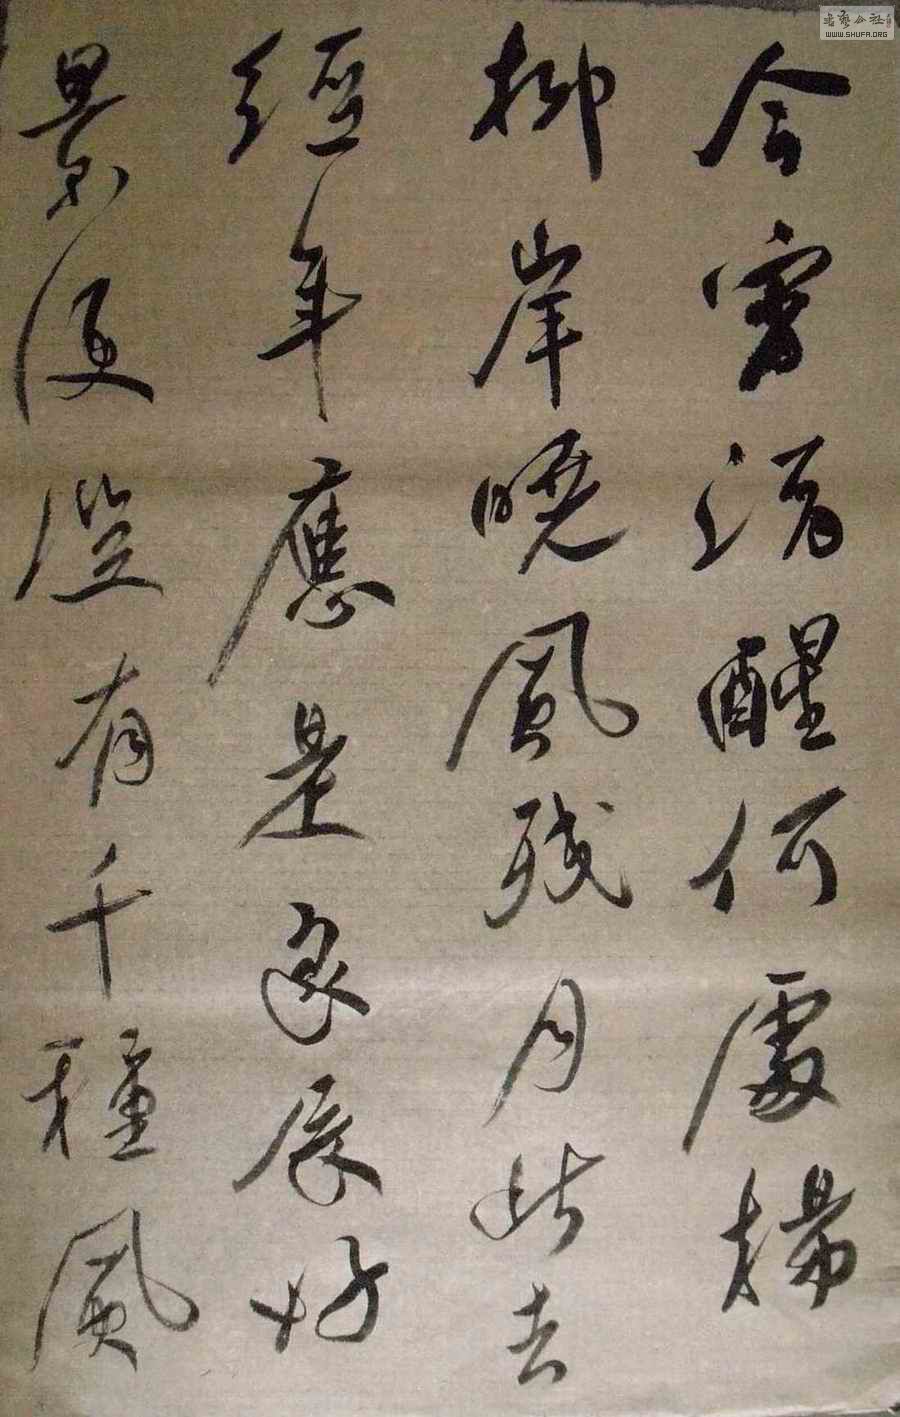 今宵酒醒何處楊
柳岸曉風残月此去
經年應是良辰好
景便有千種風
書藝公社
WWW.SHUFA.ORG